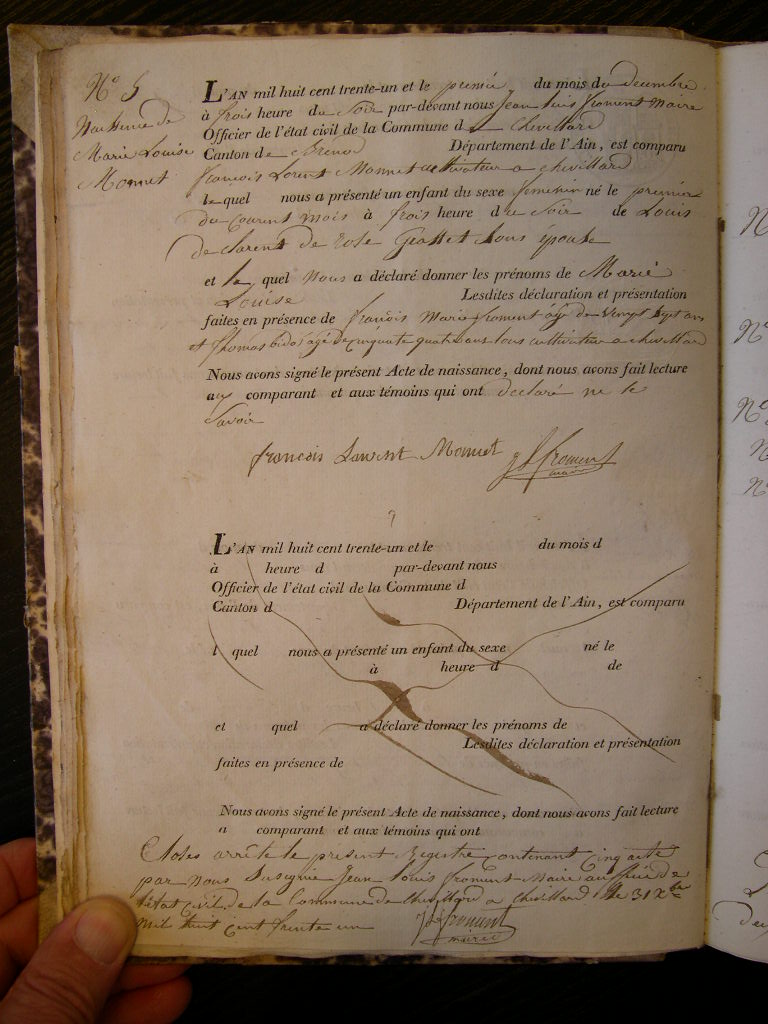 N° 5
Naissence de
Marie Louise
Monnet
L'AN mil huit cent trente-un et le premié du mois de decembre
à trois heure du Soir par-devant nous jean Louis froment Maire
Officier de l'état civil de la Commune de Chevillard
Canton de Brenod Département de l'Ain, est comparu
françois Lorent Monnet cultivateur a chevillard
le quel nous a présenté un enfant du sexe femenin né le premier
du Courent mois à trois heure du Soir de Louis
declarent de Rose Goattet Sous épouse
et le quel Nous a déclaré donner les prénoms de Marie
Louise Lesdites déclaration et présentation
faites en présence de françois Marie froment âgé de Vingt Sept ans
et thomas bidos agé de cinquate quatre ans tous cultivateur a chevillard
Nous avons signé le présent Acte de naissance, dont nous avons fait lecture
au comparant et aux témoins qui ont declaré ne le
Savoir
françois Laurent Monnet jLfroment
maire
L'AN mil huit cent trente-un et le du mois d
à heure d par-devant nous
Officier de l'état civil de la Commune d
Canton d Département de l'Ain, est comparu
l quel nous a présenté un enfant du sexe né le
à heure d de
et quel a déclaré donner les prénoms de
Lesdites déclaration et présentation
faites en présence de
Nous avons signé le présent Acte de naissance, dont nous avons fait lecture
a comparant et aux témoins qui ont
Clotes arrête le present Registre contenant Cinq acte
par nous Susignie Jean Louis froment Maire de
l'état civil de la Commune de Chevillard a chevillard le 31 Xbre
Mil huit cent trente un jLfroment
maire
N°
N°
N°
N°
N°